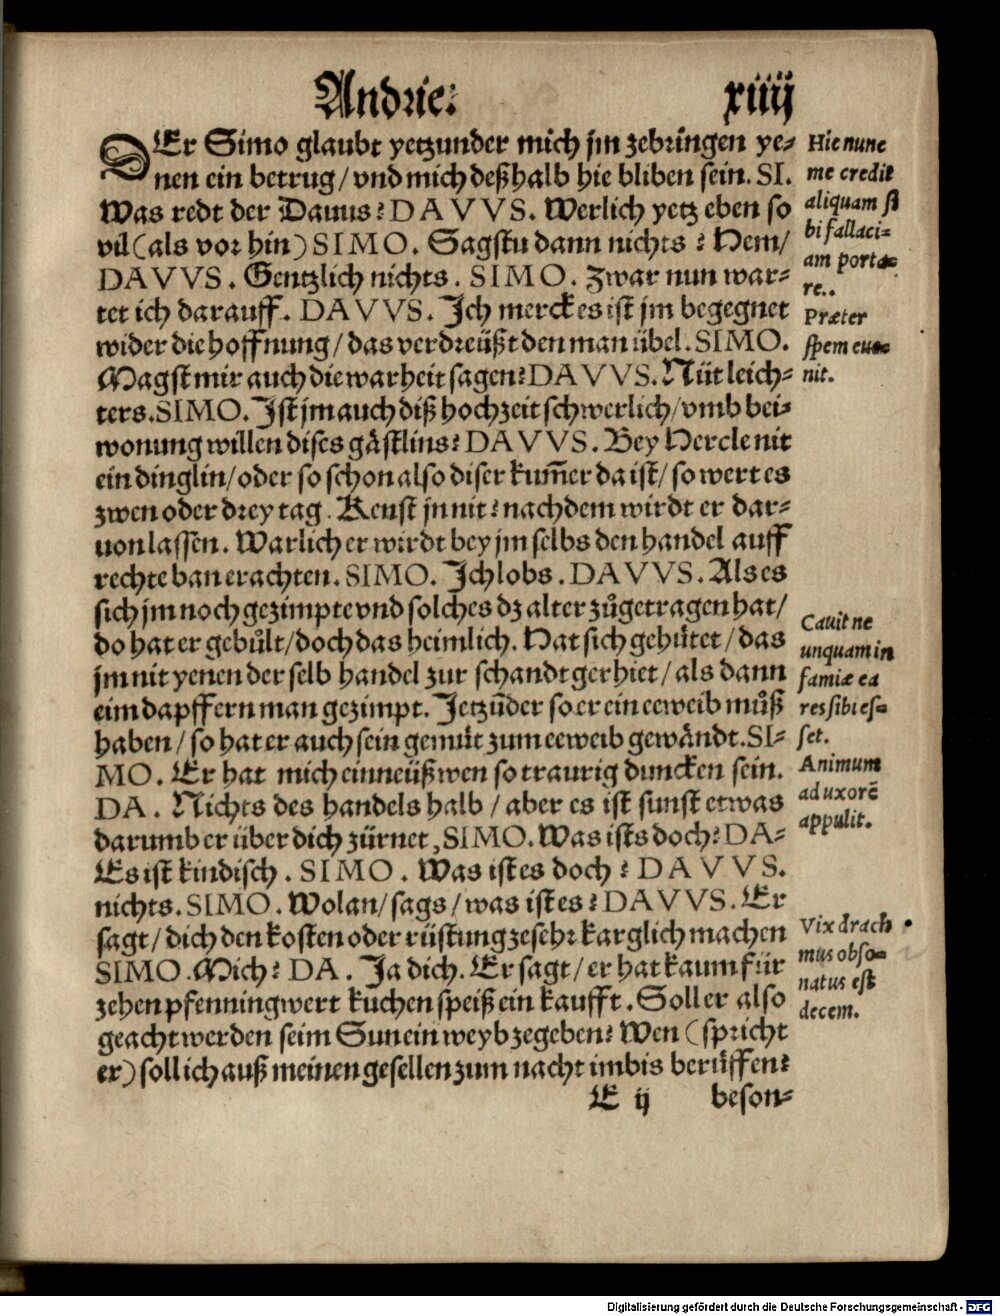 Andrie. xiiij
DEr Simo glaubt yetzunder mich jm zebringen ye-
nen ein betrug/ vnd mich deßhalb hie bliben sein. SI.
Was redt der Dauus? DAVVS. Werlich yetz eben so
vil (als vor hin) SIMO. Sagstu dann nichts? Hem/
DAVVS. Gentzlich nichts. SIMO. Zwar nun war-
tet ich darauff. DAVVS. Ich merck es ist jm begegnet
wider die hoffnung/ das verdreüßt den man übel. SIMO.
Magst mir auch die warheit sagen? DAVVS. Nüt leich-
ters. SIMO. Ist jm auch diß hochzeit schwerlich/ vmb bei-
wonung willen dises gåstlins? DAVVS. Bey Hercle nit
ein dinglin/ oder so schon also diser kum̃er da ist/ so wert es
zwen oder drey tag. Kenst jn nit? nachdem wirdt er dar-
uon lassen. Warlich er wirdt bey jm selbs den handel auff
rechte ban erachten. SIMO. Ich lobs. DAVVS. Als es
sich jm noch gezimpte vnd solches dz alter zůgetragen hat/
do hat er gebůlt/ doch das heimlich. Hat sich gehütet/ das
jm nit yenen der selb handel zur schandt gerhiet/ als dann
eim dapffern man gezimpt. Jetzũder so er ein eeweib můß
haben/ so hat er auch sein gemüt zum eeweib gewåndt. SI-
MO. Er hat mich einneüßwen so traurig duncken sein.
DA. Nichts des handels halb/ aber es ist sunst etwas
darumb er über dich zürnet, SIMO. Was ists doch? DA-
Es ist kindisch. SIMO. Was ist es doch? DAVVS.
nichts. SIMO. Wolan/ sags/ was ist es? DAVVS. Er
sagt/ dich den kosten oder rüstung zesehr karglich machen
SIMO. Mich? DA. Ja dich. Er sagt/ er hat kaum für
zehen pfenningwert kuchen speiß ein kaufft. Soll er also
geacht werden seim Sun ein weyb zegeben? Wen (spricht
er) soll ich auß meinen gesellen zum nacht imbis berüffen?
E ij beson-
Hic nunc
me credit
aliquam si
bi fallaci-
am porta-
re..
Præter
spem eue-
nit.
Cauit ne
unquam in
famiæ ea
res sibi es-
set.
Animum
ad uxorẽ
appulit.
Vix drach
mus obso-
natus est
decem.
Digitalisierung gefördert durch die Deutsche Forschungsgemeinschaft - DFG